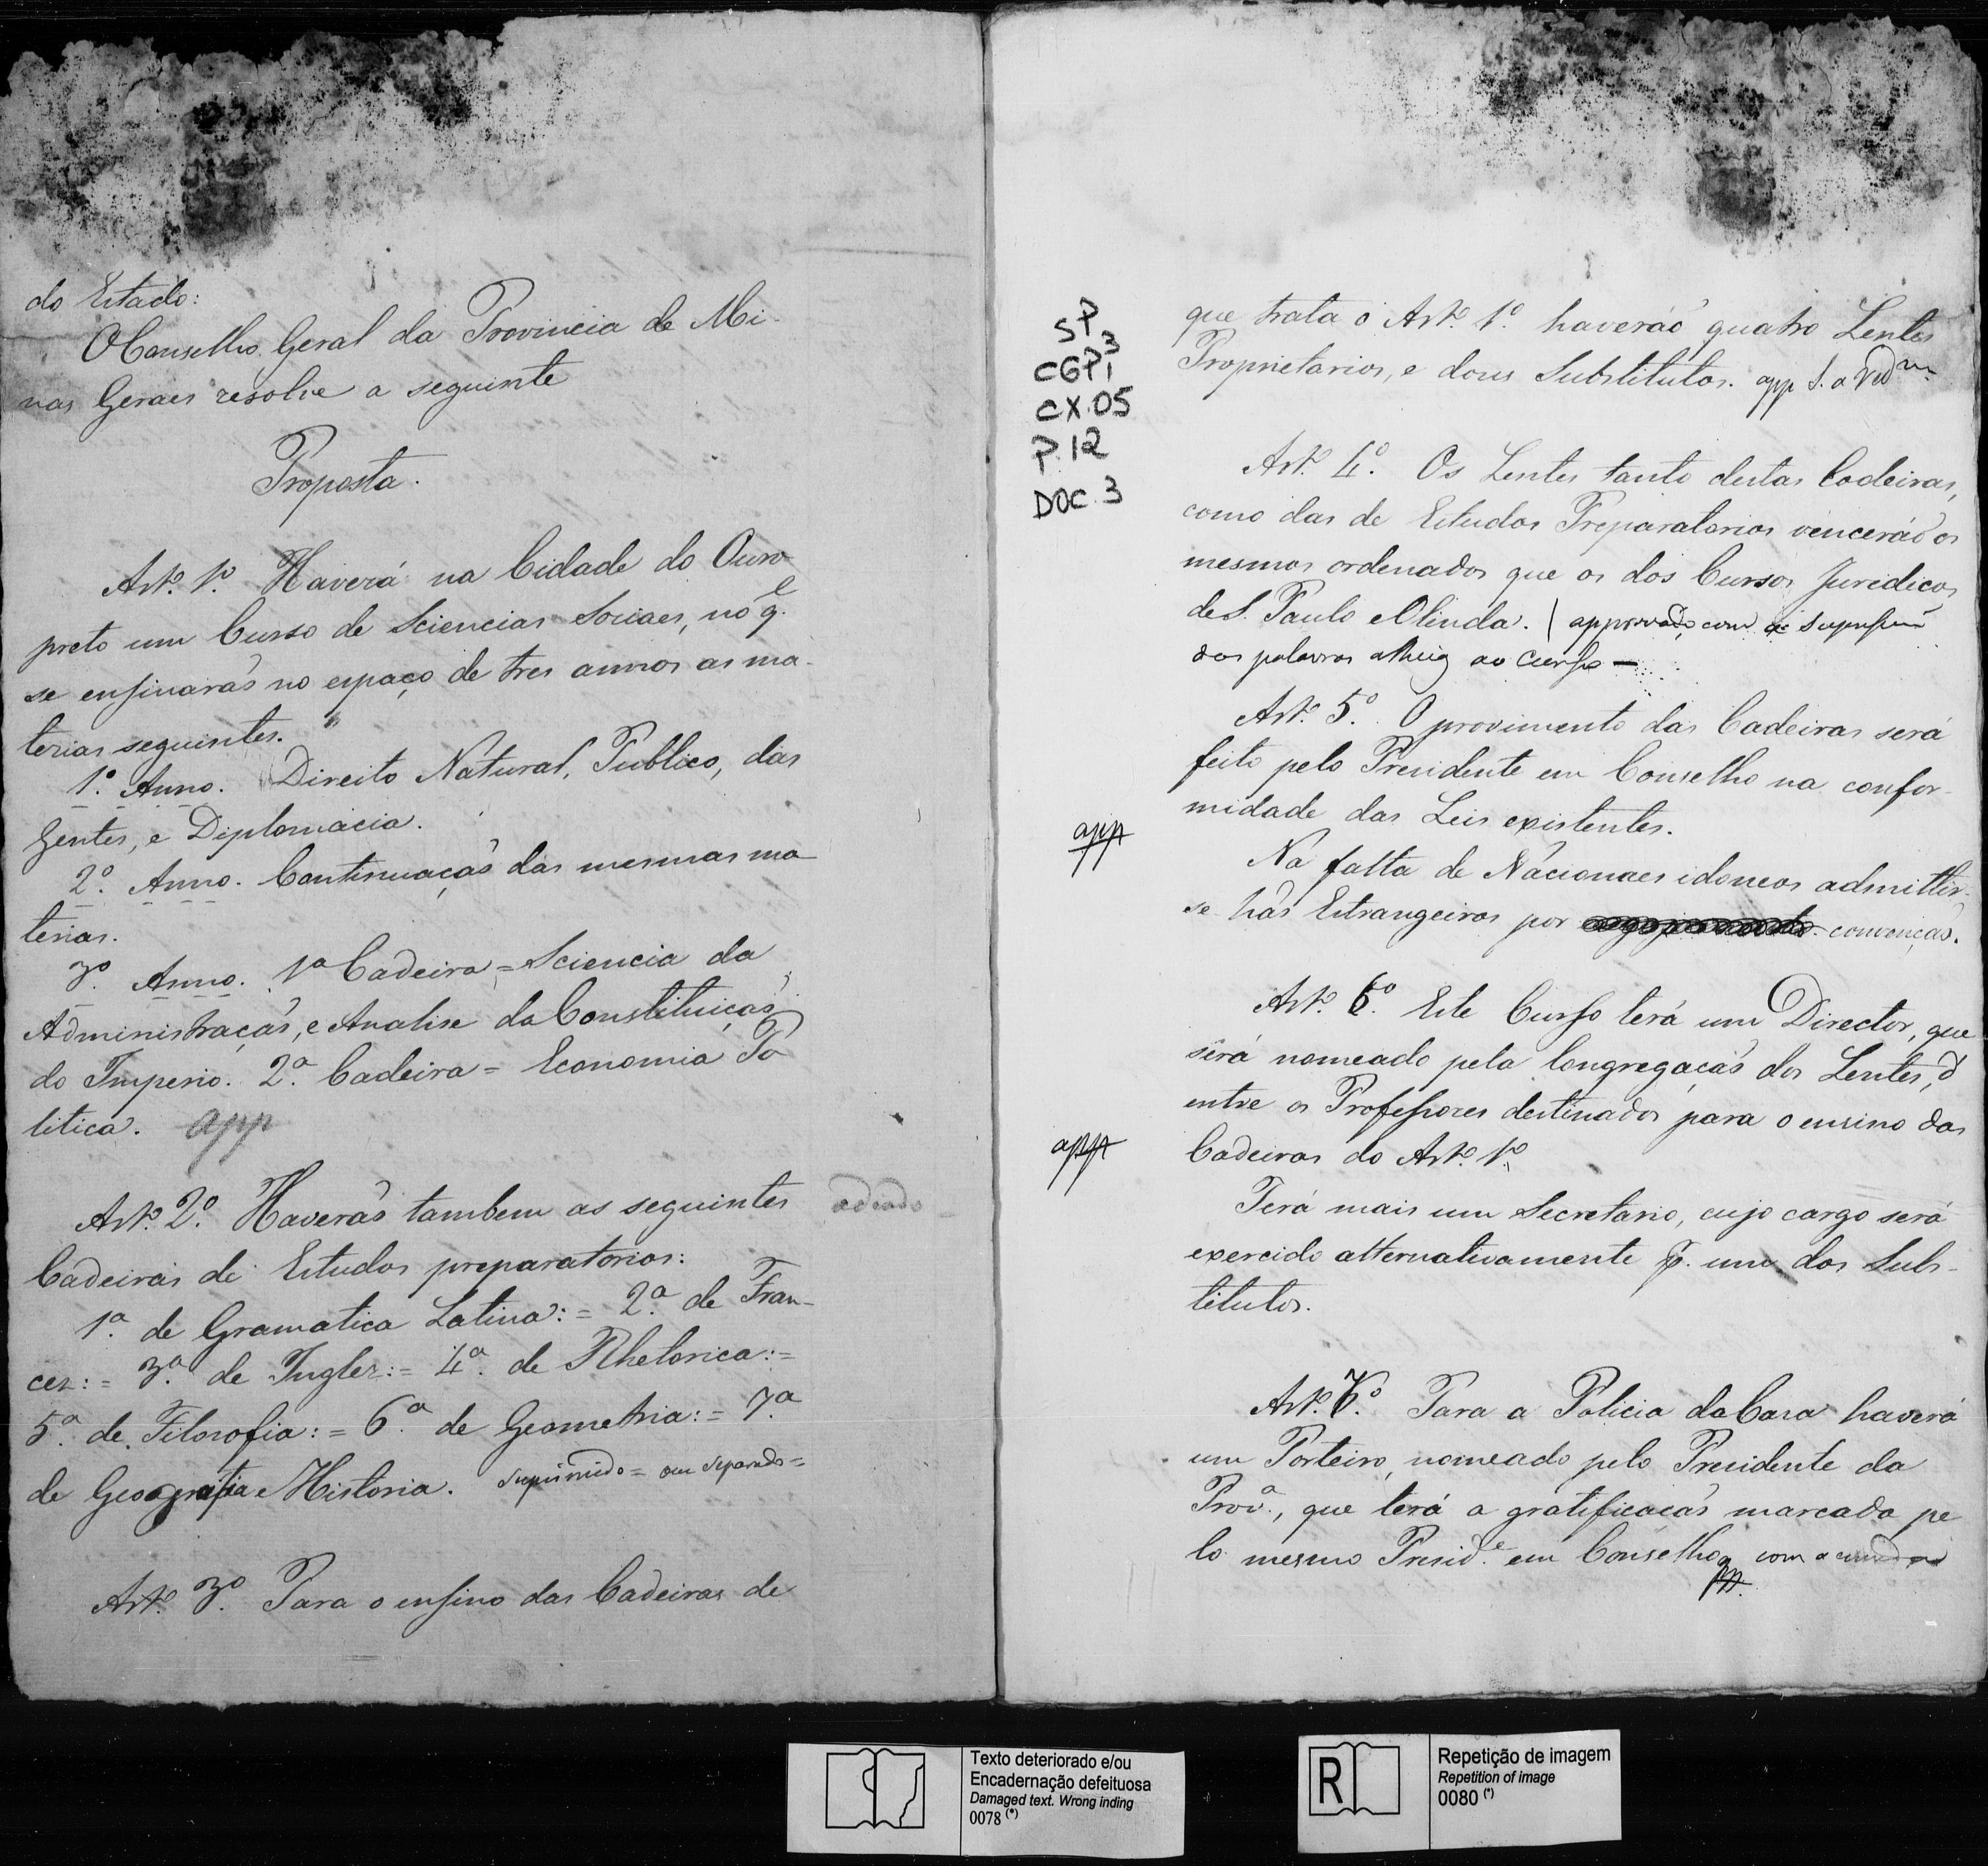 do Estado:
O Conselho Geral da Provincia de Mi-
nas Geraes resolve a seguinte
Proposta.
Art.º 1.º Haverá na Cidade do Ouro
preto um Curso de Sciencias Sociaes, no q.l
se ensinarão no espaço de tres annos as ma-
terias seguintes.
1.º Anno. Direito Natural, Publico, das
Gentes, e Diplomacia.
2.º Anno. Continuação das mesmas ma-
terias.
3.º Anno. 1.ª Cadeira = Sciencia da
Administração, e Analise da Constituição
do Imperio. 2.ª Cadeira = Economia Po
litica. app
Art.º 2.º Haverão tambem as seguintes
adiado
Cadeiras de Estudos preparatorios:
1.ª de Gramatica Latina: = 2.ª de Fran-
cez: = 3.ª de Inglez: = 4.ª de Rhetorica: =
5.ª de Filosofia: = 6.ª de Geometria: = 7.ª
de Geografia e Historia. Suprimido = ou separado =
Art.º 3.º Para o ensino das Cadeiras de
SP 3
CGP1
CX.05
P.12
DOC.3
que trata o Art.º 1.º haverão quatro Lentes
Proprietarios, e dous Substitutos. app S. a red.m
Art.º 4.º Os Lentes tanto destas Cadeiras,
como das de Estudos Preparatorios vencerão os
mesmos ordenados que os dos Cursos Juridicos
de S. Paulo e Olinda. / approvado com a supressão
das palavras atheis ao Curso —
Art.º 5.º O provimento das Cadeiras será
feito pelo Presidente em Conselho na confor-
midade das Leis existentes.
app
Na falta de Nacionaes idoneos admittir-
se-hão Estrangeiros por convenção.
Art.º 6.º Este Curso terá um Director, que
será nomeado pela Congregação dos Lentes, d
entre os Professores destinados para o ensino das
app
Cadeiras do Art.º 1.º
Terá mais um Secretario, cujo cargo será
exercido alternativamente p. um dos Subs-
titutos.
Art.º 7.º Para a Policia da Casa haverá
um Porteiro, nomeado pelo Presidente da
Prov.ª, que terá a gratificação marcada pe
lo mesmo Presid.e em Conselho app. com a
Texto deteriorado e/ou
Encadernação defeituosa
Damaged text. Wrong inding
0078 (*)
R
Repetição de imagem
Repetition of image
0080 (*)